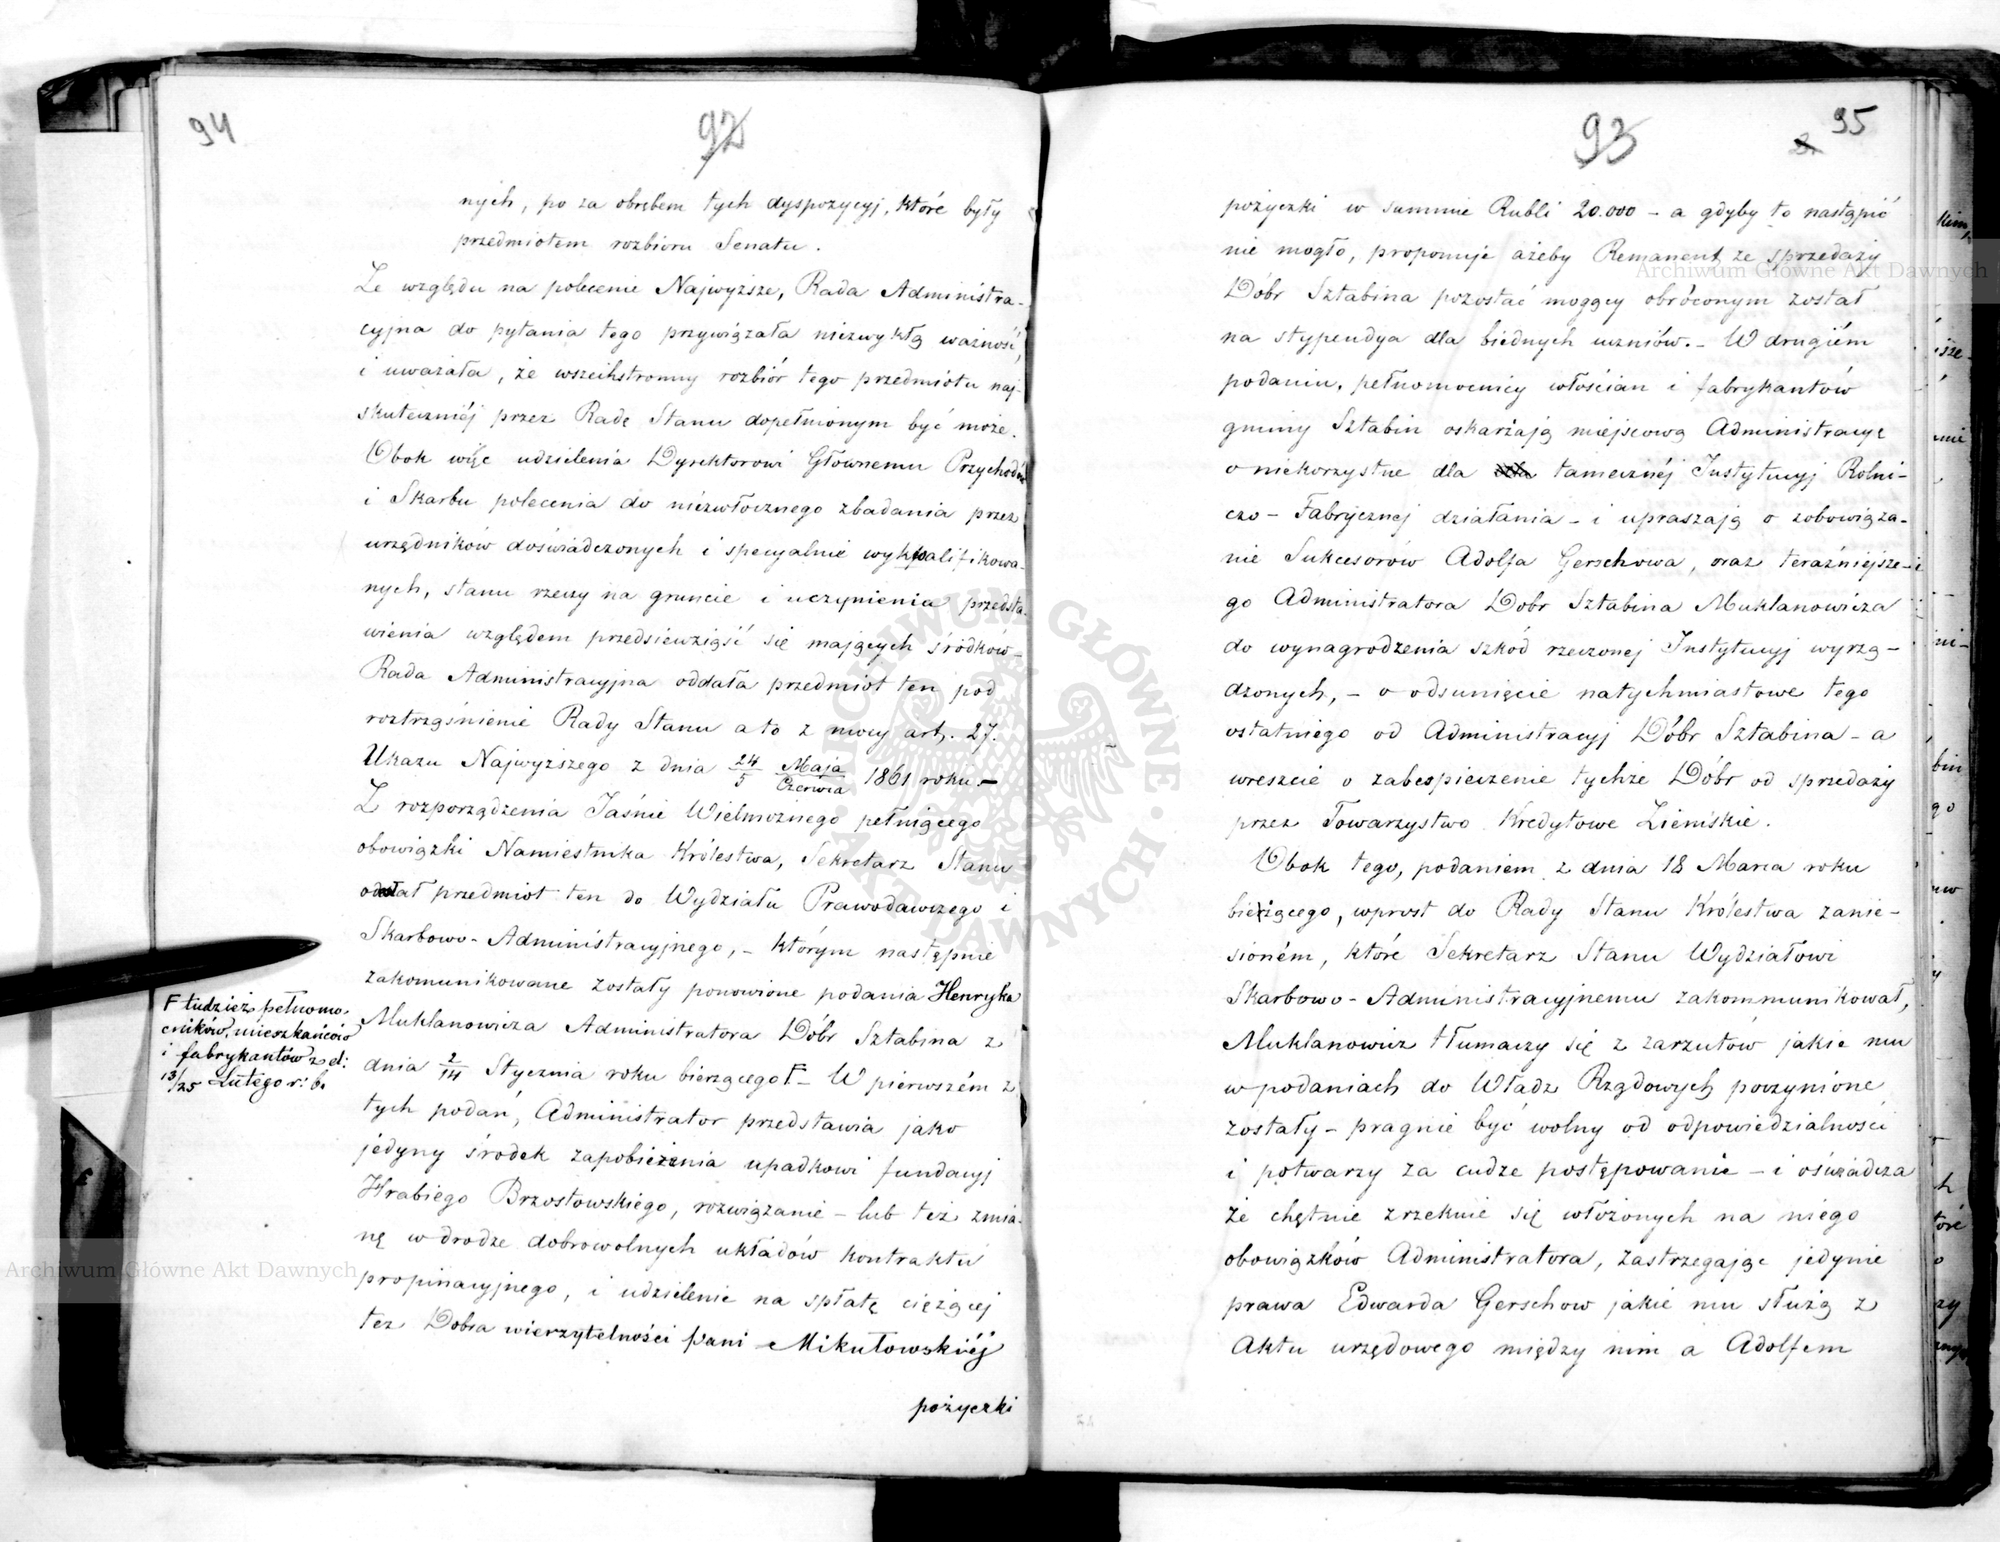 94
92
nych, po za obrębem tych dyspozycyj, które były
przedmiotem rozbioru Senatu.
Ze względu na polecenie Najwyższe, Rada Administra-
cyjna do pytania tego przywiązała niezwykłą ważność,
i uważała, że wszechstronny rozbiór tego przedmiotu naj-
skuteczniéj przez Radę Stanu dopełnionym być może.
Obok więc udzielenia Dyrektorowi Głównemu Przychodów
i Skarbu polecenia do niezwłocznego zbadania przez
urzędników doświadczonych i specyalnie wykwalifikowa-
nych, stanu rzeczy na gruncie i uczynienia przedsta-
wienia względem przedsięwziąść się mających środków –
Rada Administracyjna oddała przedmiot ten pod
roztrząśnienie Rady Stanu a to z mocy art. 27.
Ukazu Najwyższego z dnia 24/5 Maja/Czerwca 1861 roku. –
Z rozporządzenia Jaśnie Wielmożnego pełniącego
obowiązki Namiestnika Królestwa, Sekretarz Stanu
odesłał przedmiot ten do Wydziału Prawodawczego i
Skarbowo-Administracyjnego, – którym następnie
zakomunikowane zostały ponowione podania Henryka
Muklanowicza Administratora Dóbr Sztabina z
dnia 2/14 Stycznia roku bieżącego F – W pierwszém z
tych podań, Administrator przedstawia jako
jedyny środek zapobieżenia upadkowi fundacyj
Hrabiego Brzostowskiego, rozwiązanie – lub też zmia-
nę w drodze dobrowolnych układów kontraktu
propinacyjnego, i udzielenie na spłatę ciężącej
też Dobra wierzytelności Pani Mikułowskiéj
pożyczki
F tudzież pełnomo-
cników, mieszkańców
i fabrykantów z d:
13/25 Lutego r: b.
93
95
pożyczki w summie Rubli 20.000 – a gdyby to nastąpić
nie mogło, proponuje ażeby Remanent ze sprzedaży
Dóbr Sztabina pozostać mogący obróconym został
na stypendya dla biednych uczniów. – W drugiém
podaniu, pełnomocnicy włościan i fabrykantów
gminy Sztabin oskarżają miejscową Administracyę
o niekorzystne dla tamecznéj Instytucyj Rolni-
czo – Fabrycznej działania – i upraszają o zobowiąza-
nie Sukcesorów Adolfa Gerschowa, oraz teraźniejsze-
go Administratora Dóbr Sztabina Muklanowicza
do wynagrodzenia szkód rzeczonej Instytucyj wyrzą-
dzonych, – o odsunięcie natychmiastowe tego
ostatniego od Administracyj Dóbr Sztabina – a
wreszcie o zabespieczenie tychże Dóbr od sprzedaży
przez Towarzystwo Kredytowe Ziemskie.
Obok tego, podaniem z dnia 18 Marca roku
bieżącego, wprost do Rady Stanu Królestwa zanie-
sioném, które Sekretarz Stanu Wydziałowi
Skarbowo-Administracyjnemu zakommunikował,
Muklanowicz tłumaczy się z zarzutów jakie mu
w podaniach do Władz Rządowych poczynione
zostały – pragnie być wolny od odpowiedzialności
i potwarzy za cudze postępowanie – i oświadcza
że chętnie zrzeknie się włożonych na niego
obowiązków Administratora, zastrzegając jedynie
prawa Edwarda Gerschow jakie mu służą z
Aktu urzędowego między nim a Adolfem
Archiwum Główne Akt Dawnych
Archiwum Główne Akt Dawnych
ARCHIWUM GŁÓWNE AKT DAWNYCH